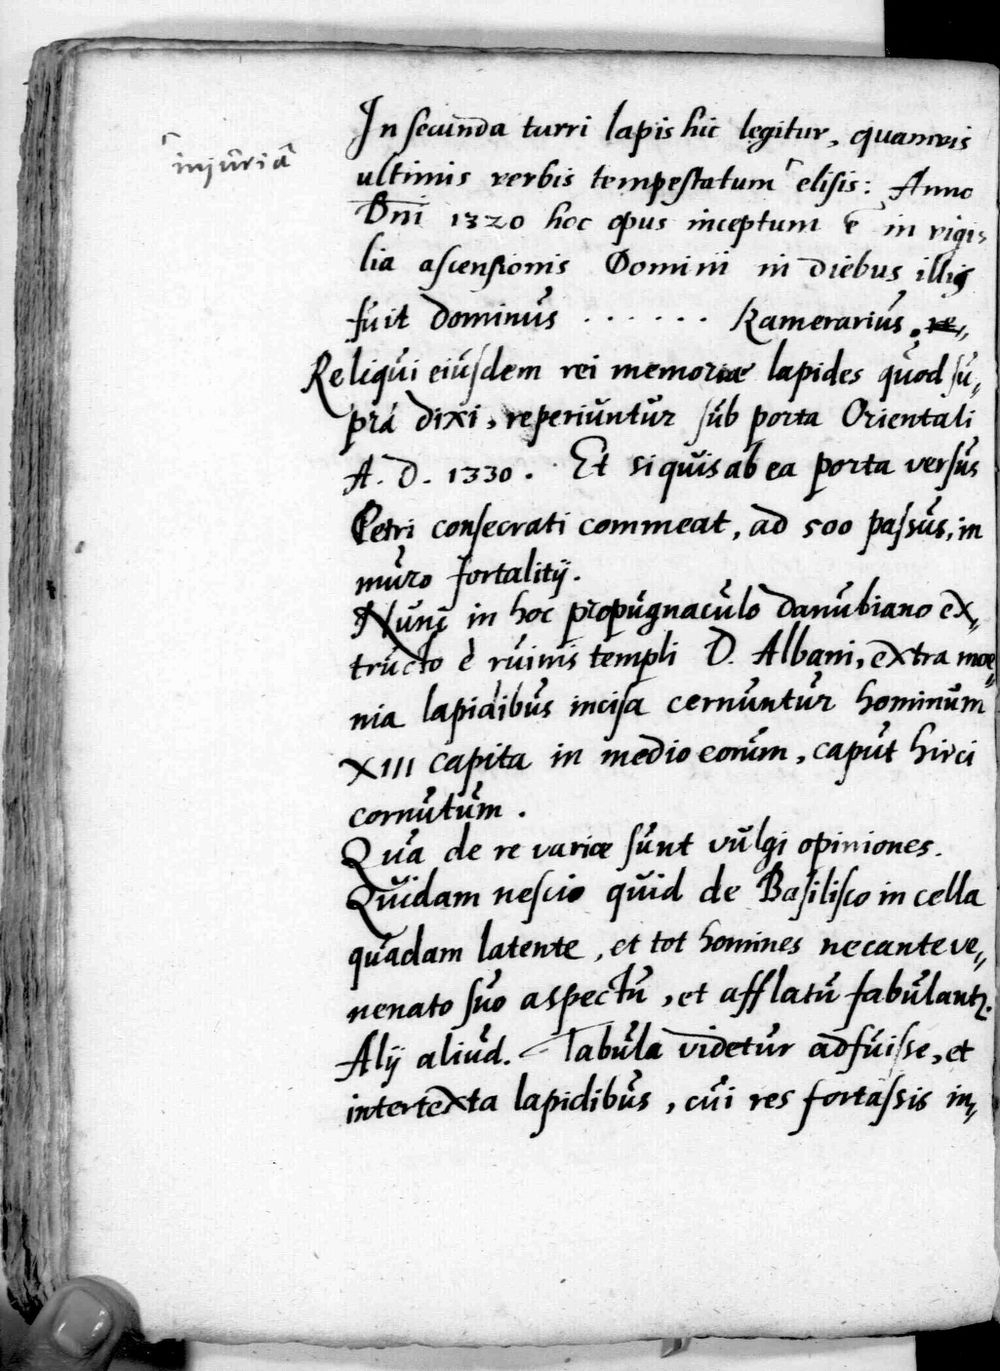 In secunda turri lapis hic legitur, quamvis
⌈injuriâ
ultimis verbis tempestatum⌈ elisis: Anno
Dni 1320 hoc opus inceptum ē in vigi=
lia ascensionis Domini in diebus illis
fuit Dominus ...... Kamerarius.
Reliqui eiusdem rei memoriæ lapides quod su„
prà dixi, reperiuntur sub porta Orientali
A. D. 1330. Et si quis ab ea porta versus
Petri consecrati commeat, ad 500 passus, in
muro fortalitij.
Nunc in hoc propugnaculo danubiano ex„
tructo è ruinis templi D. Albani, extra moe„
nia lapidibus incisa cernuntur hominum
XIII capita in medio eorum, caput hirci
cornutum.
Qua de re variæ sunt vulgi opiniones.
Quidam nescio quid de Basilisco in cella
quadam latente, et tot homines necante ve„
nenato suo aspectu, et afflatu fabulantꝛ.
Alij aliud. Tabula videtur adfuisse, et
intertexta lapidibus, cui res fortassis in„